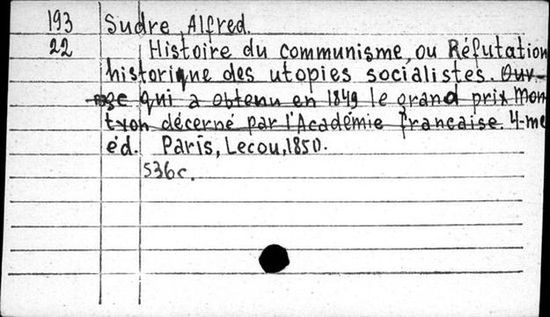 193 Sudre, Alfred.
22 Histoire du communisme, ou Réfutation
historique des utopies socialistes. Ouvr-
age qui a obtenu en 1849 le grand prix Mon-
tyon décerné par l'Académie française. 4-me
éd. Paris, Lecou, 1850.
536c.